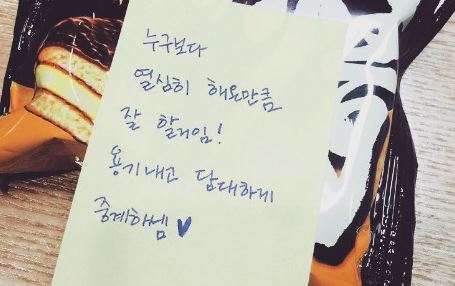 누구보다
열심히 해온만큼
잘 할거임!
용기내고 담대하게
중계하쎔 ♥